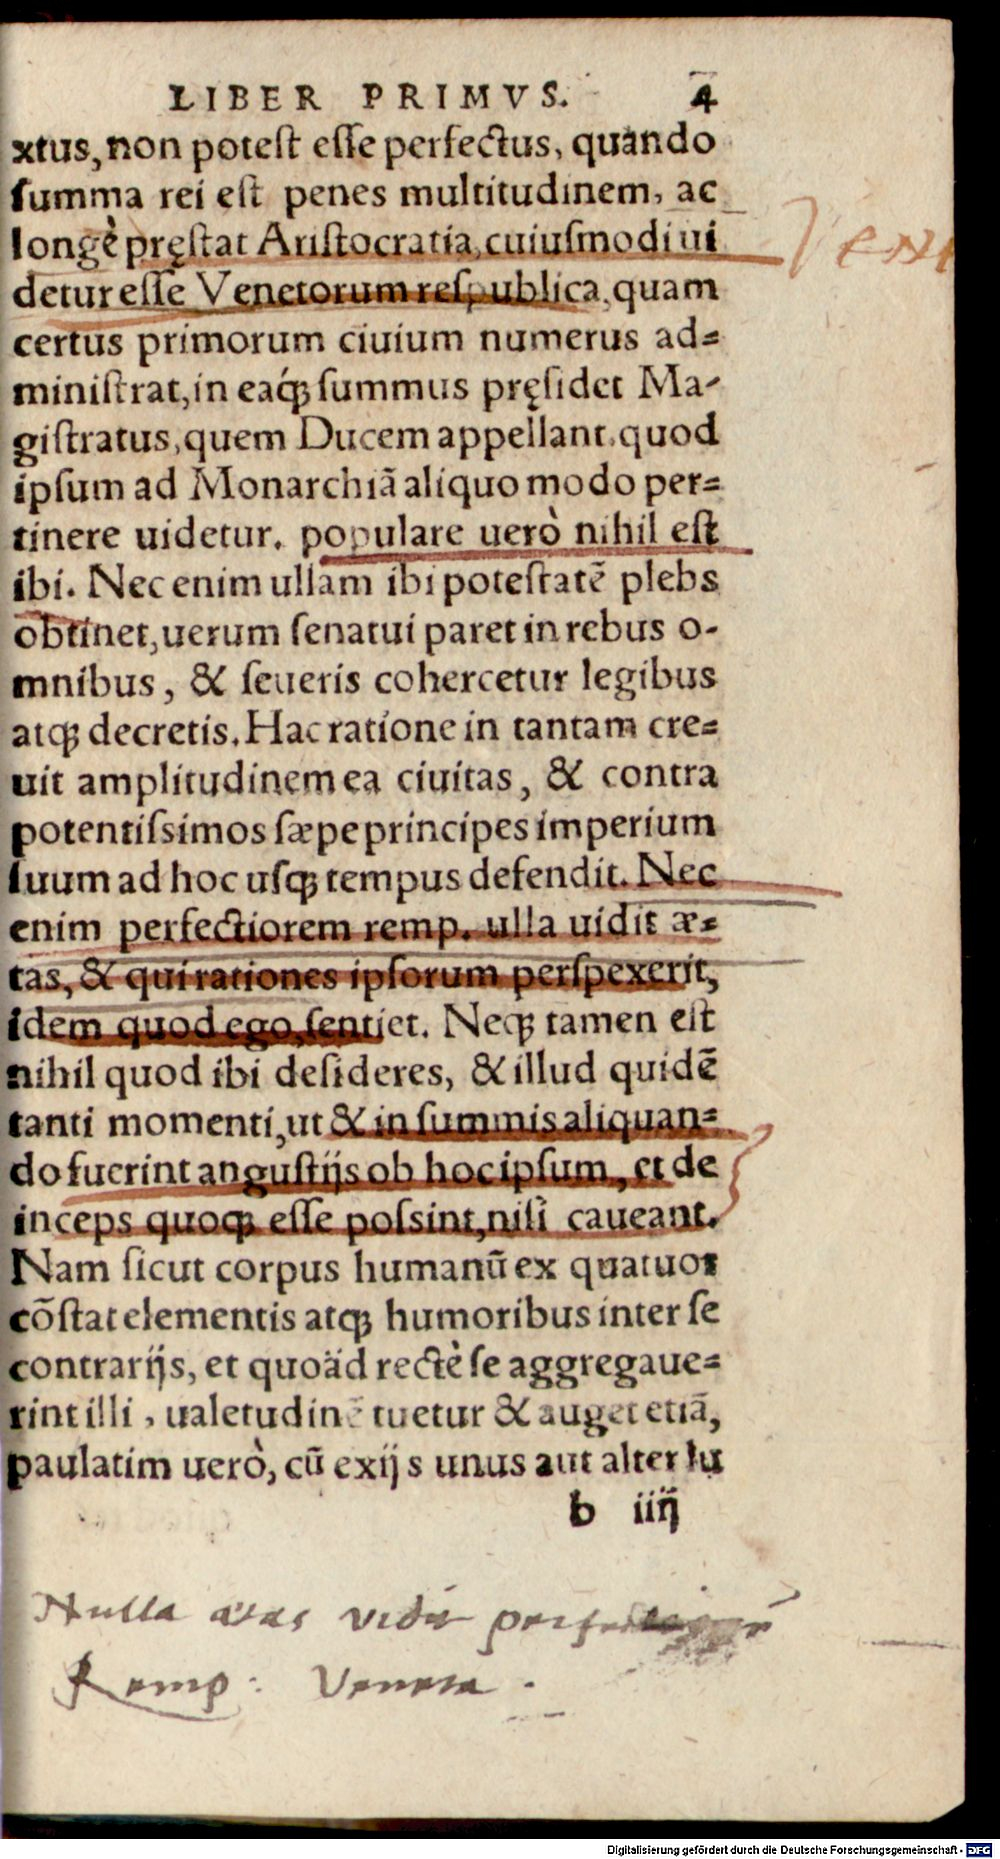 LIBER PRIMVS. 4
xtus, non potest esse perfectus, quando
summa rei est penes multitudinem, ac
longè pręstat Aristocratia, cuiusmodi ui
detur esse Venetorum respublica, quam
certus primorum ciuium numerus ad=
ministrat, in eaq́ꝫ summus pręsidet Ma-
gistratus, quem Ducem appellant, quod
ipsum ad Monarchiā aliquo modo per=
tinere uidetur. populare uerò nihil est
ibi. Nec enim ullam ibi potestatē plebs
obtinet, uerum senatui paret in rebus o-
mnibus, & seueris cohercetur legibus
atqꝫ decretis. Hac ratione in tantam cre=
uit amplitudinem ea ciuitas, & contra
potentissimos sæpe principes imperium
suum ad hoc usqꝫ tempus defendit. Nec
enim perfectiorem remp. ulla uidit æ=
tas, & qui rationes ipsorum perspexerit,
idem quod ego, sentiet. Neqꝫ tamen est
nihil quod ibi desideres, & illud quidē
tanti momenti, ut & in summis aliquan=
do fuerint angustijs ob hoc ipsum, et de
inceps quoqꝫ esse possint, nisi caueant.
Nam sicut corpus humanū ex quatuor
cōstat elementis atqꝫ humoribus inter se
contrarijs, et quoäd rectè se aggregaue=
rint illi, ualetudinē tuetur & auget etiā,
paulatim uerò, cū ex ijs unus aut alter lu
b iiij
Nulla ætas vidit
Remp: Veneta.
Digitalisierung gefördert durch die Deutsche Forschungsgemeinschaft - DFG